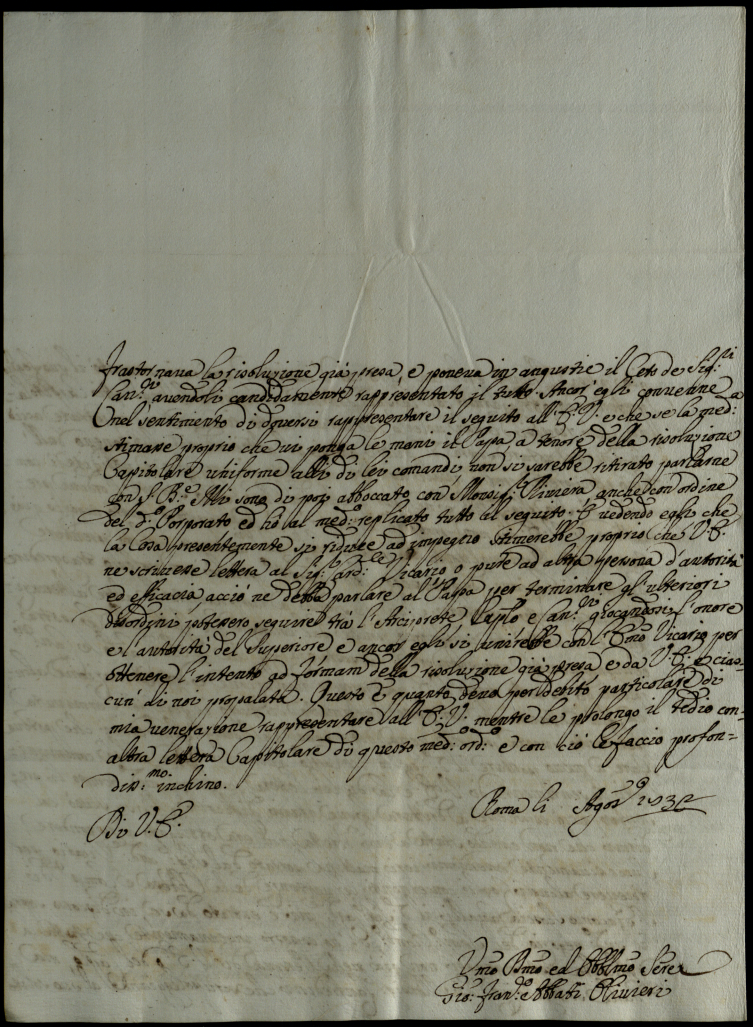 frastornava la risoluzione già presa, e poneva in angustie il Ceto de Sig:ri
Can:ci avendoli candidamente rappresentato il tutto. Ancor' egli convenne
nel sentimento di doversi rappresentare il seguito all' E. V. e che se la med:a
stimasse proprio che vi ponga le mani il Papa a tenore della risoluzione
Capitolare uniforme alli di lei comandi, non si sarebbe ritirato parlarne
con S. B:ne Mi sono di poi abboccato con Monsig:r Riviera anche con ordine
del d:o Porporato ed ho al med:o replicato tutto il seguito. E vedendo egli che
la Cosa presentemente si riduce ad impegno stimerebbe proprio che V. E.
ne scrivesse lettera al Sig:r Card:le Vicario o pure ad altra persona d'autorità
ed efficacia acciò ne debba parlare al Papa per terminare gl'ulteriori
disordini potessero seguire trà l'Arciprete, Caplo e Can:ci giocandosi l'onore
e l'autorità del Superiore e ancor egli si unirebbe con l'Emo Vicario per
ottenere l'intento ad formam della risoluzione già presa e da V. E. e cias=
cun' di noi propalata. Questo è quanto devo per debito particolare di
mia venerazione rappresentare all' E. V. mentre le prolongo il tedio con
altra lettera Capitolare di questo med:o ord:o e con ciò le faccio profon=
diss:mo inchino.
Di V. E.
Roma li Agos:o 1732
Umo Dmo ed Obblmo Sere
Gio: Fran:co Abbati Olivieri